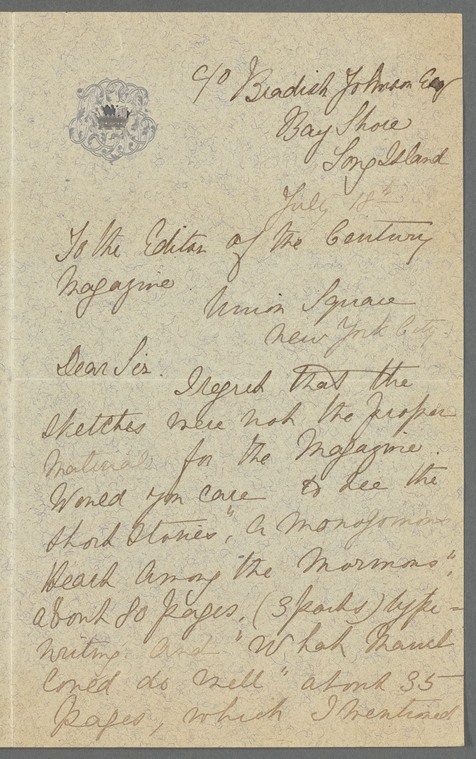 c/o Bradish Johnson Esq
Bay Shore
Long Island
July 18th
To the Editor of the Century
Magazine
Union Square
New York City
Dear Sir.
I regret that the
sketches were not the proper
material for the Magazine.
Would you care to see the
short stories, "A monogomous
Heart Among the Mormons",
about 80 pages, (3 parts) type-
writing and "What
could do well" about 35
pages, which I mentioned